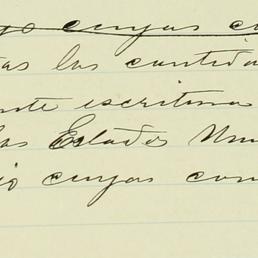 cuyas c
las cantida
escritura
los Estados Uni
io cuyas con